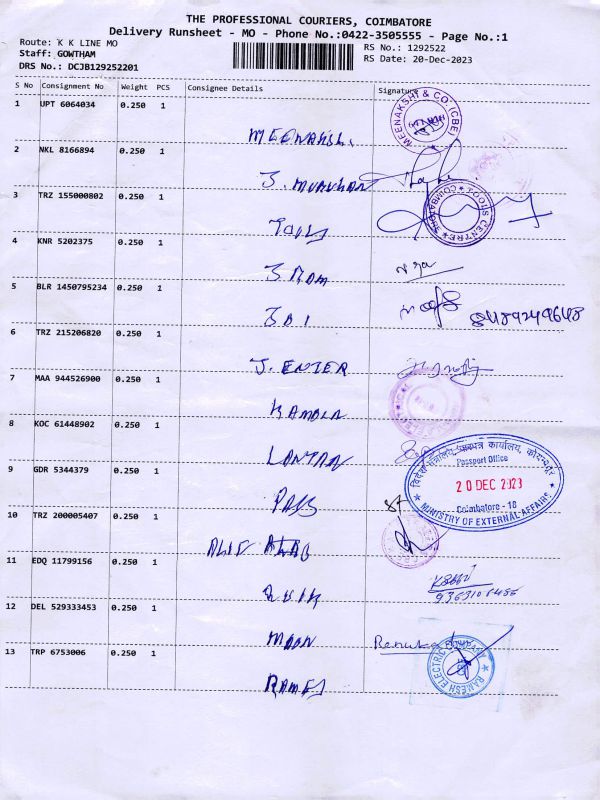 THE PROFESSIONAL COURIERS, COIMBATORE
Delivery Runsheet - MO - Phone No.:0422-3505555 - Page No.:1
Route: K K LINE MO
RS No.: 1292522
Staff: GOWTHAM
RS Date: 20-Dec-2023
DRS No.: DCJB129252201
S No Consignment No Weight PCS Consignee Details Signature
1 UPT 6064034 0.250 1
MEENAKSHI & CO. (CBE)
MEENAKSHI
2 NKL 8166894 0.250 1
S. MURUGAN
3 TRZ 155000802 0.250 1
TOOLS CENTRE COIMBATORE
TOOLS
4 KNR 5202375 0.250 1
S RAM
5 BLR 1450795234 0.250 1
SBI
6 TRZ 215206820 0.250 1
J. ENTER
7 MAA 944526900 0.250 1
8 KOC 61448902 0.250 1
विदेश मंत्रालय, पारपत्र कार्यालय, कोयम्बत्तूर
Passport Office
20 DEC 2023
Coimbatore - 18
MINISTRY OF EXTERNAL AFFAIRS
9 GDR 5344379 0.250 1
PASS
10 TRZ 200005407 0.250 1
11 EDQ 11799156 0.250 1
12 DEL 529333453 0.250 1
MOON
13 TRP 6753006 0.250 1
Renuka
RAMESH ELECTRIC COMPANY
RAMES